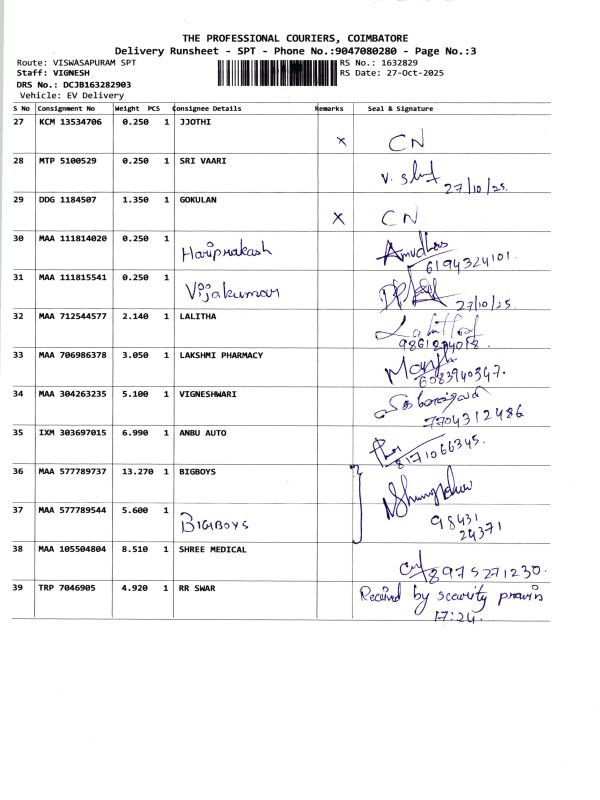 THE PROFESSIONAL COURIERS, COIMBATORE
Delivery Runsheet - SPT - Phone No.:9047080280 - Page No.:3
Route: VISWASAPURAM SPT RS No.: 1632829
Staff: VIGNESH RS Date: 27-Oct-2025
DRS No.: DCJB163282903
Vehicle: EV Delivery
S No Consignment No Weight PCS Consignee Details Remarks Seal & Signature
27 KCM 13534706 0.250 1 JJOTHI
x CN
28 MTP 5100529 0.250 1 SRI VAARI
27/10/25.
29 DDG 1184507 1.350 1 GOKULAN
x CN
30 MAA 111814020 0.250 1
Hariprakash Amudha
6194324101.
31 MAA 111815541 0.250 1
Vijakumar
27/10/25
32 MAA 712544577 2.140 1 LALITHA
33 MAA 706986378 3.050 1 LAKSHMI PHARMACY
6083940347.
34 MAA 304263235 5.100 1 VIGNESHWARI
7704312486
35 IXM 303697015 6.990 1 ANBU AUTO
8171066345.
36 MAA 577789737 13.270 1 BIGBOYS
37 MAA 577789544 5.600 1
BIGBOYS 98431
24371
38 MAA 105504804 8.510 1 SHREE MEDICAL
8975271230.
39 TRP 7046905 4.920 1 RR SWAR
Received by security pravin
17:24.